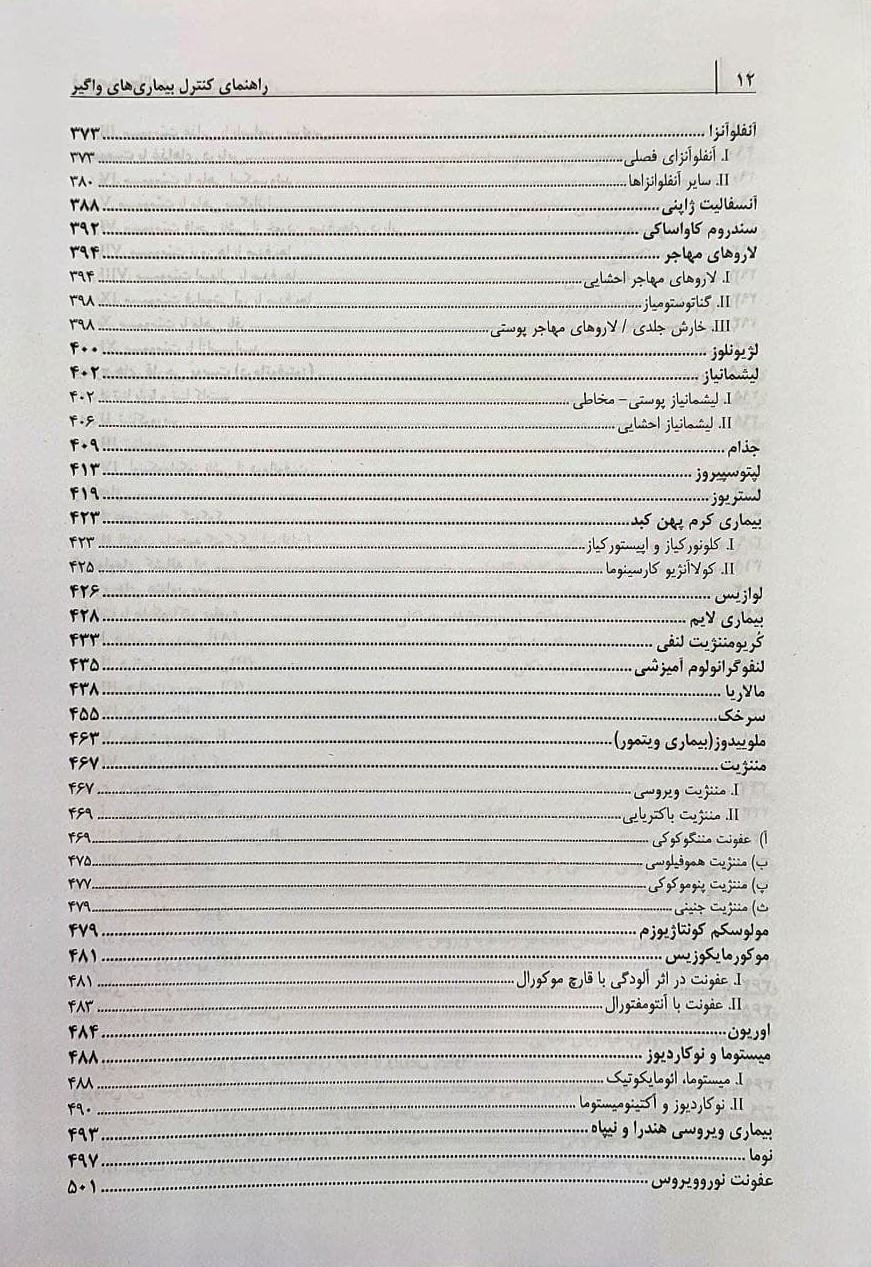 ۱۲ راهنمای کنترل بیماری‌های واگیر
آنفلوآنزا ۳۷۳
I. آنفلوآنزای فصلی ۳۷۳
II. سایر آنفلوانزاها ۳۸۰
آنسفالیت ژاپنی ۳۸۸
سندروم کاواساکی ۳۹۲
لاروهای مهاجر ۳۹۴
I. لاروهای مهاجر احشایی ۳۹۴
II. گناتوستومیاز ۳۹۸
III. خارش جلدی / لاروهای مهاجر پوستی ۳۹۸
لژیونلوز ۴۰۰
لیشمانیاز ۴۰۲
I. لیشمانیاز پوستی- مخاطی ۴۰۲
II. لیشمانیاز احشایی ۴۰۶
جذام ۴۰۹
لپتوسپیروز ۴۱۳
لستریوز ۴۱۹
بیماری کرم پهن کبد ۴۲۳
I. کلونورکیاز و اپیستورکیاز ۴۲۳
II. کولاآنژیو کارسینوما ۴۲۵
لوازیس ۴۲۶
بیماری لایم ۴۲۸
کُریومننژیت لنفی ۴۳۳
لنفوگرانولوم آمیزشی ۴۳۵
مالاریا ۴۳۸
سرخک ۴۵۵
ملوییدوز(بیماری ویتمور) ۴۶۳
مننژیت ۴۶۷
I. مننژیت ویروسی ۴۶۷
II. مننژیت باکتریایی ۴۶۹
آ) عفونت مننگوکوکی ۴۶۹
ب) مننژیت هموفیلوسی ۴۷۵
پ) مننژیت پنوموکوکی ۴۷۷
ث) مننژیت جنینی ۴۷۹
مولوسکم کونتاژیوزم ۴۷۹
موکورمایکوزیس ۴۸۱
I. عفونت در اثر آلودگی با قارچ موکورال ۴۸۱
II. عفونت با آنتومفتورال ۴۸۳
اوریون ۴۸۴
میستوما و نوکاردیوز ۴۸۸
I. میستوما، ائومایکوتیک ۴۸۸
II. نوکاردیوز و آکتینومیستوما ۴۹۰
بیماری ویروسی هندرا و نیپاه ۴۹۳
نوما ۴۹۷
عفونت نوروویروس ۵۰۱